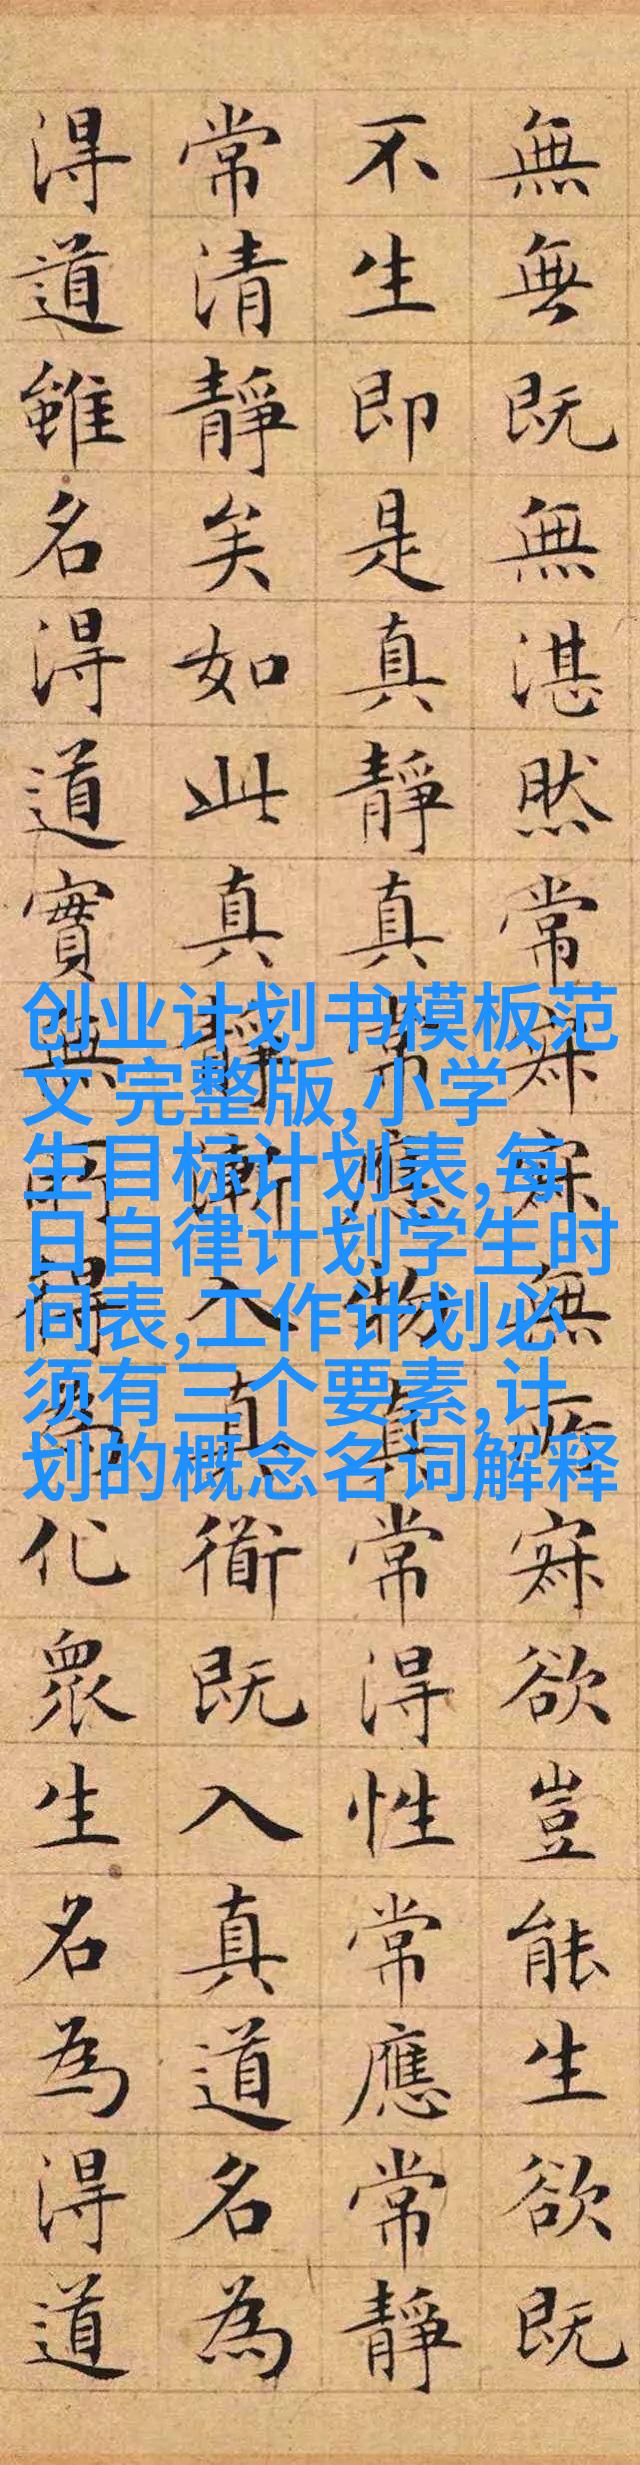 無無既無湛然常寂寂無所寂欲豈能生欲既
不生即是真靜真常應物真常得性常應常靜
常清靜矣如此真靜漸入真衜既入真道名為
得道雖名得道實無所得為化眾生名為得道
创业计划书模板范
文 完整版,小学
生目标计划表,每
日自律计划学生时
间表,工作计划必
须有三个要素,计
划的概念名词解释